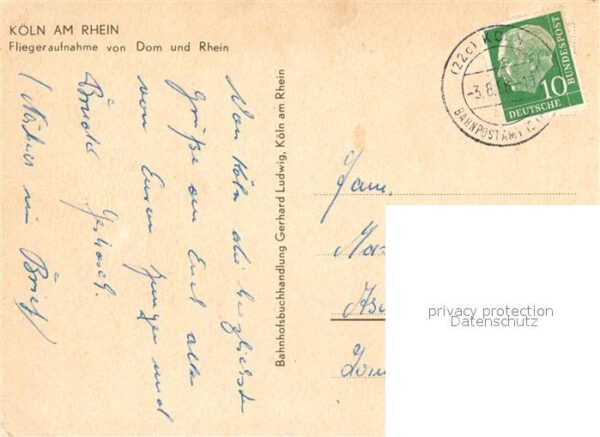 KÖLN AM RHEIN
Fliegeraufnahme von Dom und Rhein
Von Köln die herzlichsten
Grüße an Euch alle
von Eurem Jungen und
Bruder Gerhard.
(Näheres im Brief)
Bahnhofsbuchhandlung Gerhard Ludwig, Köln am Rhein
(22c) KÖLN
-3.8.
BAHNPOSTAMT
10
DEUTSCHE
BUNDESPOST
Fam.
Ma
privacy protection
Datenschutz